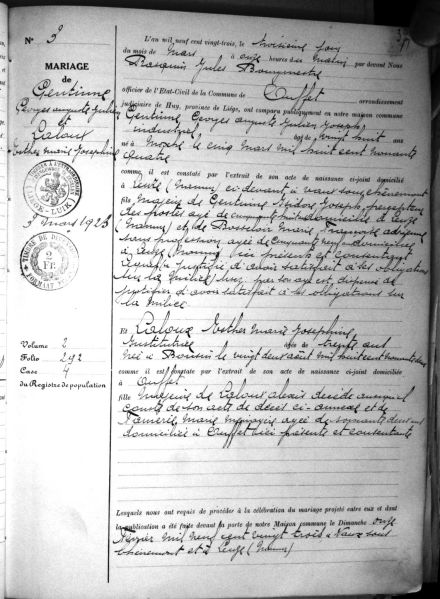 N° 3
MARIAGE
de
Gentinne
Georges Auguste Julien
et
Laloux
Esther Marie Josephine
3 mars 1923
2 FR
Volume 2
Folio 292
Case 4
du Registre de population
L'an mil neuf cent vingt-trois, le troisième jour
du mois de Mars à onze heures du matin par devant Nous
Jules Bourgmestre
officier de l'Etat-Civil de la Commune de Ouffet arrondissement
judiciaire de Huy, province de Liége, ont comparu publiquement en notre maison commune
Gentinne Georges Auguste Julien Joseph,
industriel âgé de vingt huit ans
né à le cinq Mars mil huit cent nonante
quatre
comme il est constaté par l'extrait de son acte de naissance ci-joint domicilié
à Leuze (Namur) ci-devant à Vaux sous Chèvremont
fils majeur de Gentinne Isidore Joseph, percepteur
des postes âgé de cinquante huit domicilié à Leuze
(Namur) et de Marie Françoise
sans profession âgée de cinquante neuf domiciliée
à Leuze (Namur) ici présents et consentants
justifié d'avoir satisfait à ses obligations
sur la Milice par son âge, dispensé de
justifier d'avoir satisfait à ses obligations sur
la Milice
Et Laloux Esther Marie Josephine
Institutrice âgée de trente ans
née à le vingt deux août mil huit cent nonante deux
comme il est constaté par l'extrait de son acte de naissance ci-joint domiciliée
à Ouffet
fille majeure de Laloux Alexis décédé
de son acte de décès ci-annexé et de
Marie âgée de soixante deux ans
domiciliée à Ouffet ici présente et consentante
Lesquels nous ont requis de procéder à la célébration du mariage projeté entre eux et dont
la publication a été faite devant la porte de notre Maison commune le Dimanche onze
Février mil neuf cent vingt trois à Vaux sous
Chèvremont et à Leuze (Namur)